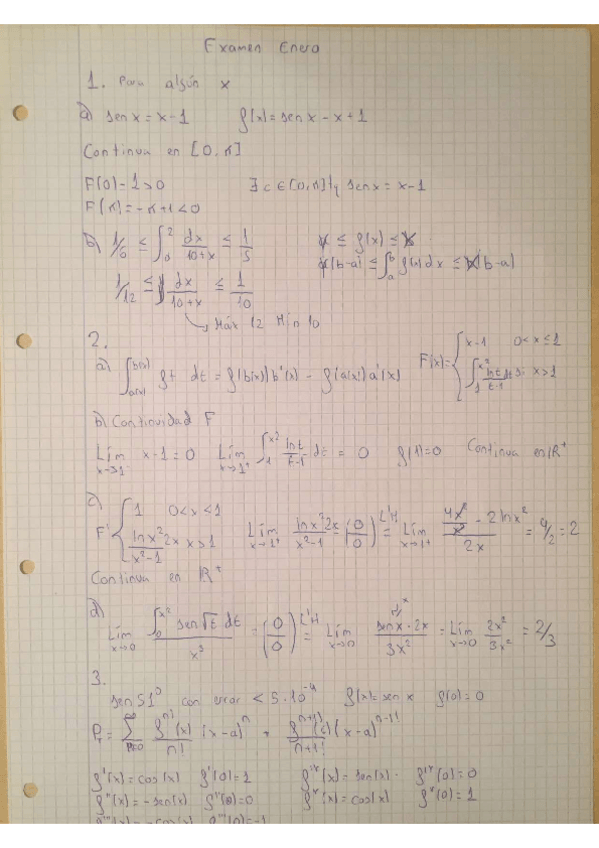 Examen Enero
1. Para algún x
a) sen x = x-1 f(x) = sen x - x + 1
Continua en [0, π]
F(0) = 1 > 0 ∃ c ∈ [0, π] tq sen x = x-1
F(π) = -π+1 < 0
b) 1/6 ≤ ∫₀² dx/(10+x) ≤ 1/5 ≤ f(x) ≤
(b-a) ≤ ∫ₐᵇ f(x) dx ≤ (b-a)
1/12 ≤ ∫ dx/(10+x) ≤ 1/10
Máx 12 Mín 10
2.
a) ∫_{a(x)}^{b(x)} ft dt = f(b(x)) b'(x) - f(a(x)) a'(x) F(x) = { x-1 0<x≤1
∫₁^{x²} lnt/(t-1) dt si x>1
b) Continuidad F
Lím x→1⁻ x-1 = 0 Lím x→1⁺ ∫₁^{x²} lnt/(t-1) dt = 0 f(1)=0 Continua en ℝ⁺
c)
F' { 1 0<x<1
ln x²/(x²-1) 2x x>1 Lím x→1⁺ ln x² 2x/(x²-1) = (0/0) L'H = Lím x→1⁺ (4x²/x² - 2 ln x²)/2x = 4/2 = 2
Continua en ℝ⁺
d)
Lím x→0 ∫₀^{x²} sen√t dt / x³ = (0/0) L'H = Lím x→0 sen x · 2x / 3x² = Lím x→0 2x²/3x² = 2/3
3.
sen 51° con error < 5·10⁻⁴ f(x) = sen x f(0) = 0
f'(x) = cos(x) f'(0) = 1 f^{IV}(x) = sen(x) f^{IV}(0) = 0
f''(x) = -sen(x) f''(0) = 0 f^{V}(x) = cos(x) f^{V}(0) = 1
f'''(x) = -cos(x) f'''(0) = -1